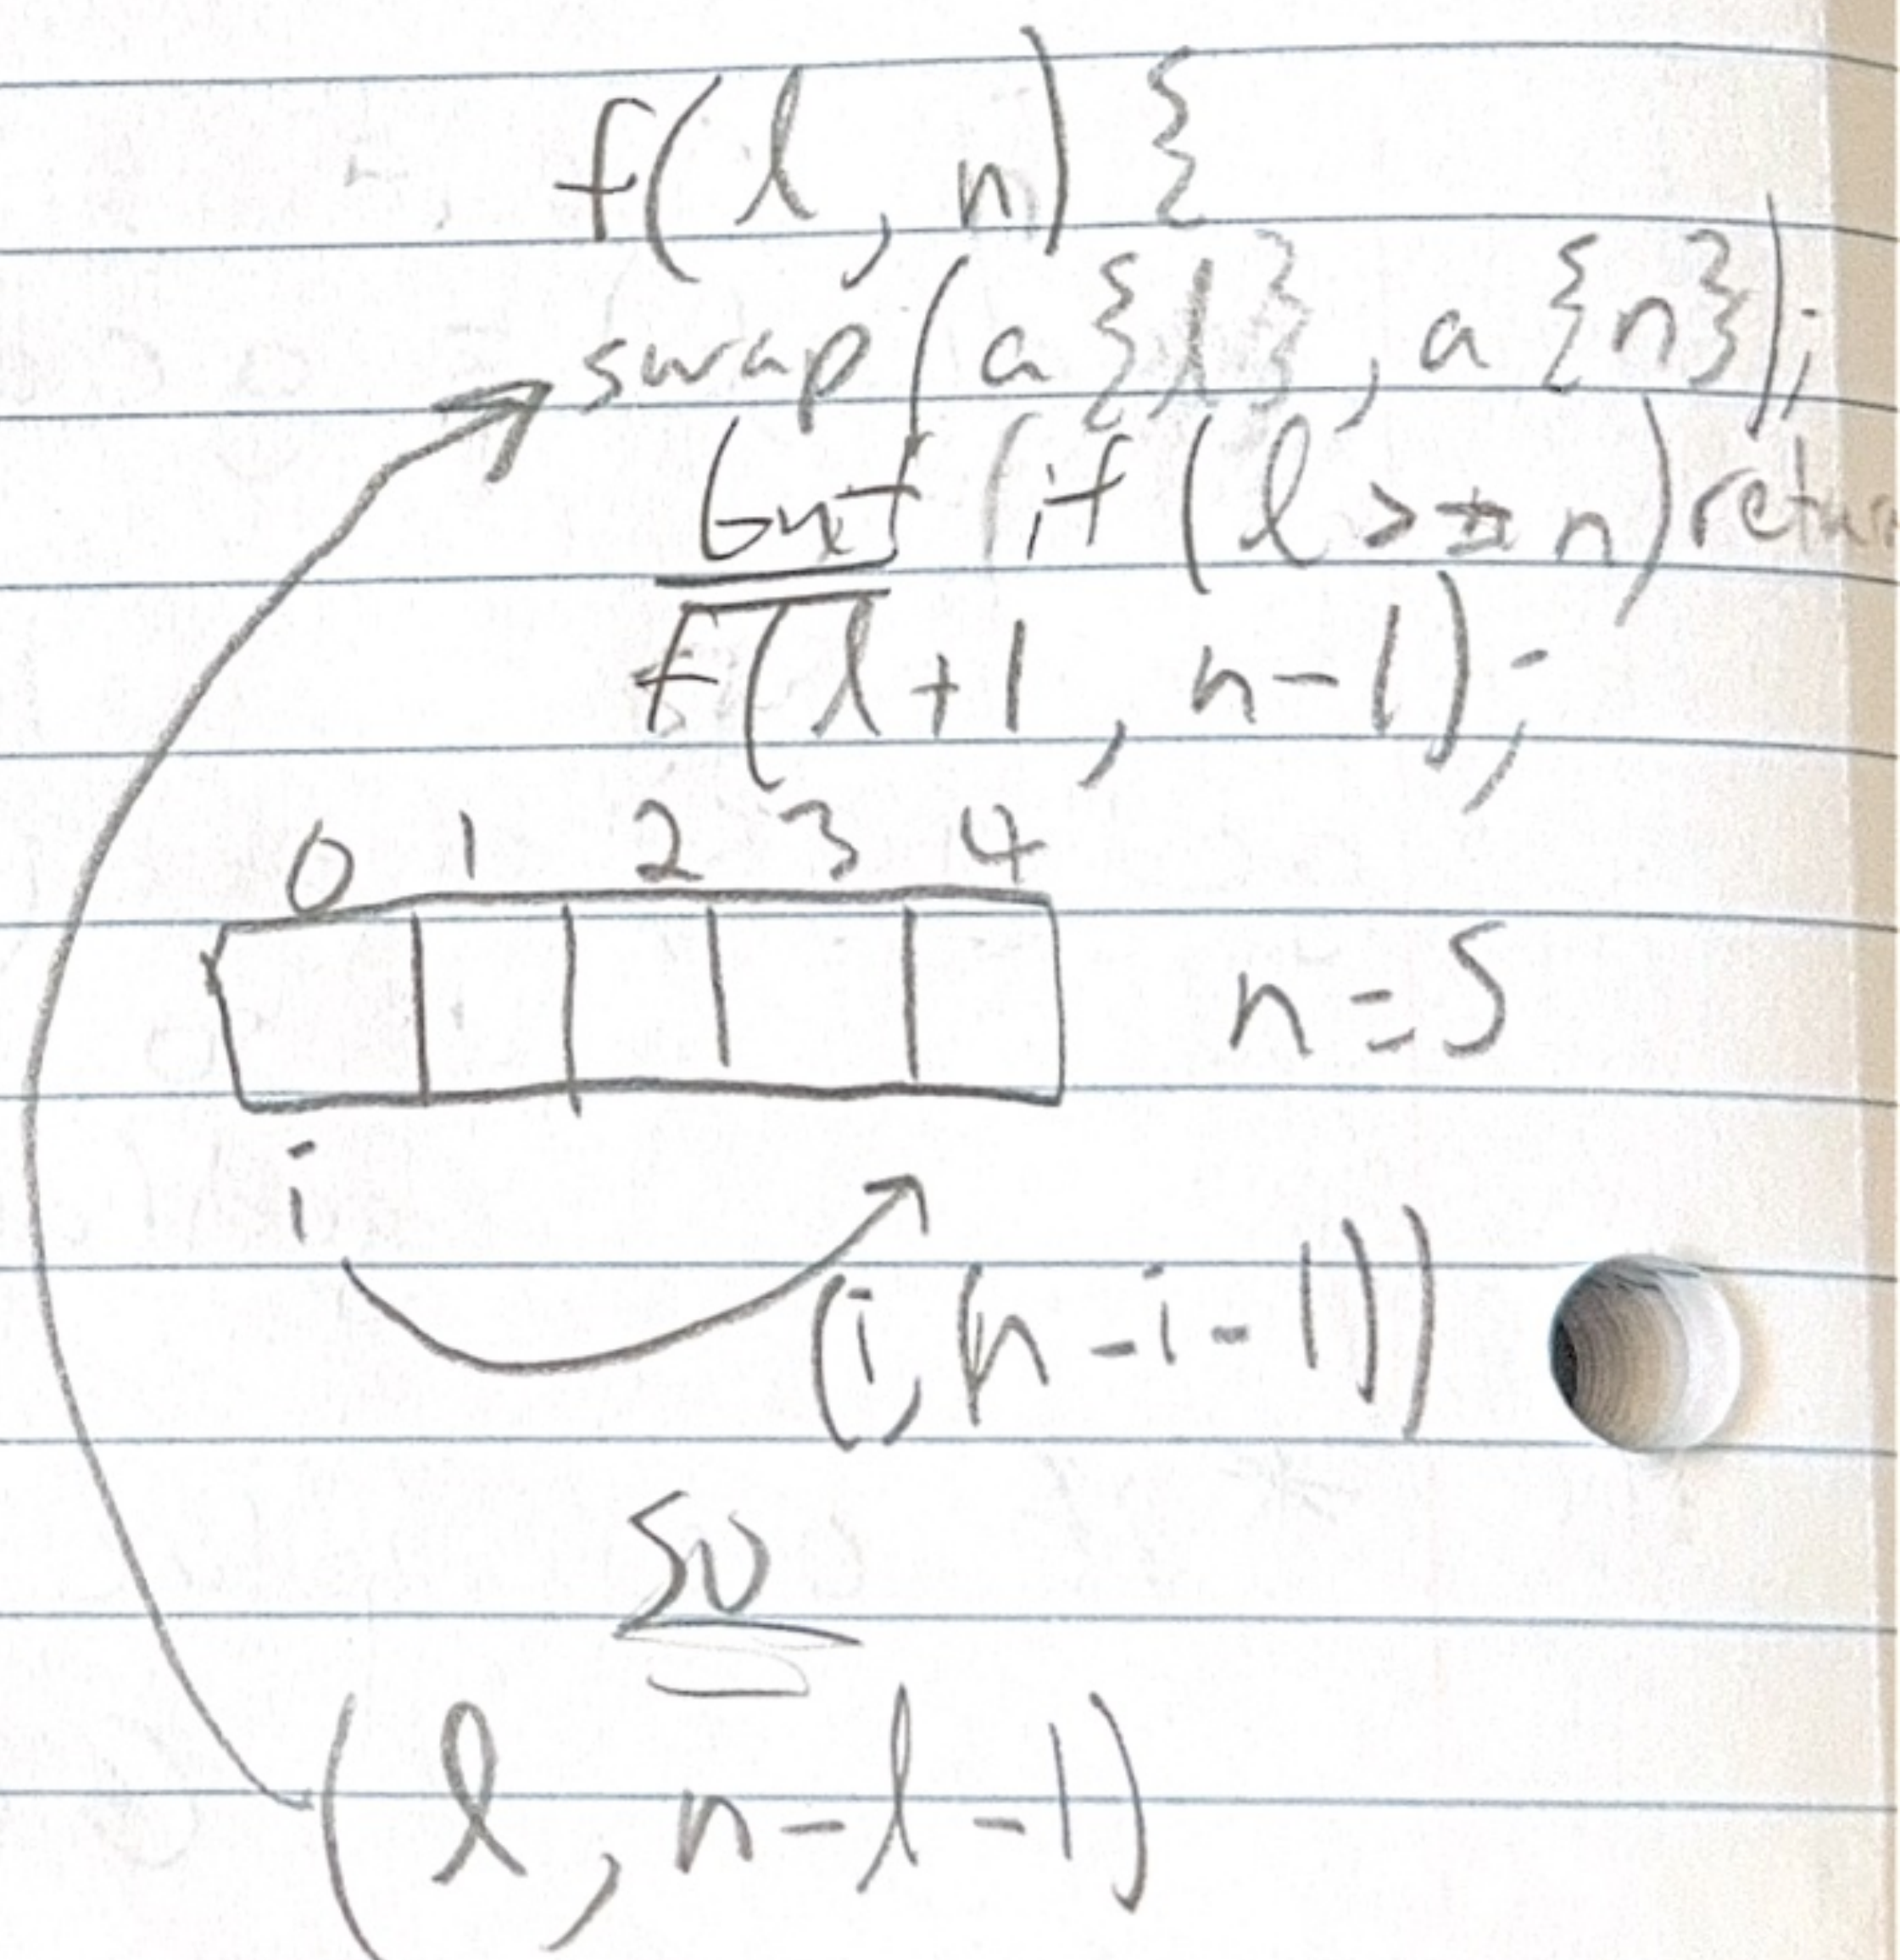 f(l, n) {
swap(a{l}, a{n});
but (if (l >= n) return
f(l+1, n-1);
0 1 2 3 4
n=5
i
(i, (n-i-1))
so
(l, n-l-1)